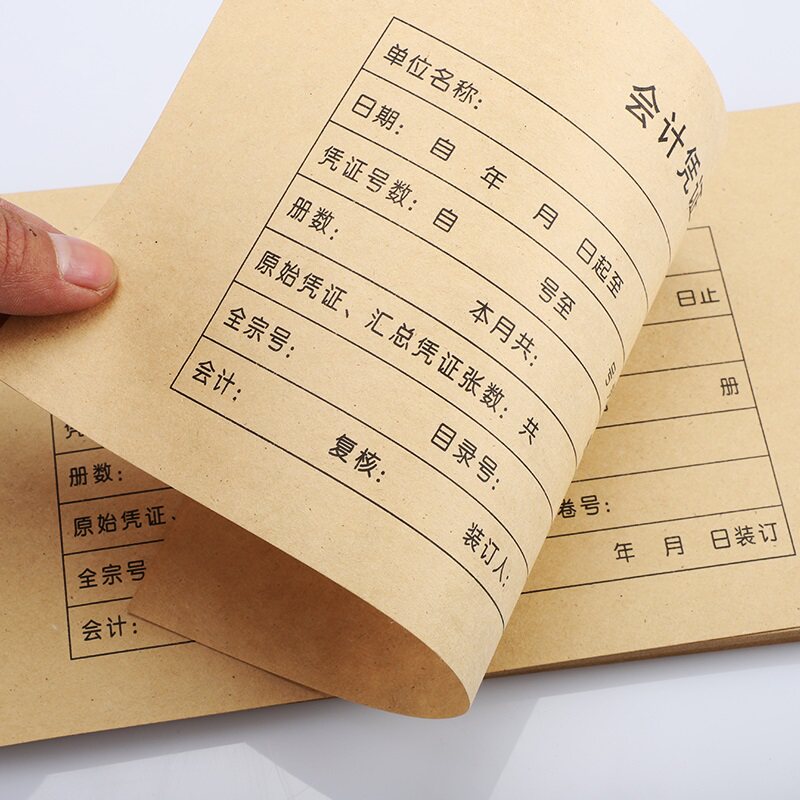 会计凭证
单位名称:
日期: 自 年 月 日起至
凭证号数: 自 号至
册数: 本月共:
原始凭证、汇总凭证张数: 共
全宗号: 目录号:
会计: 复核: 装订人:
日止
册
卷号:
年 月 日装订
凭
册数:
原始凭证、
全宗号
会计: